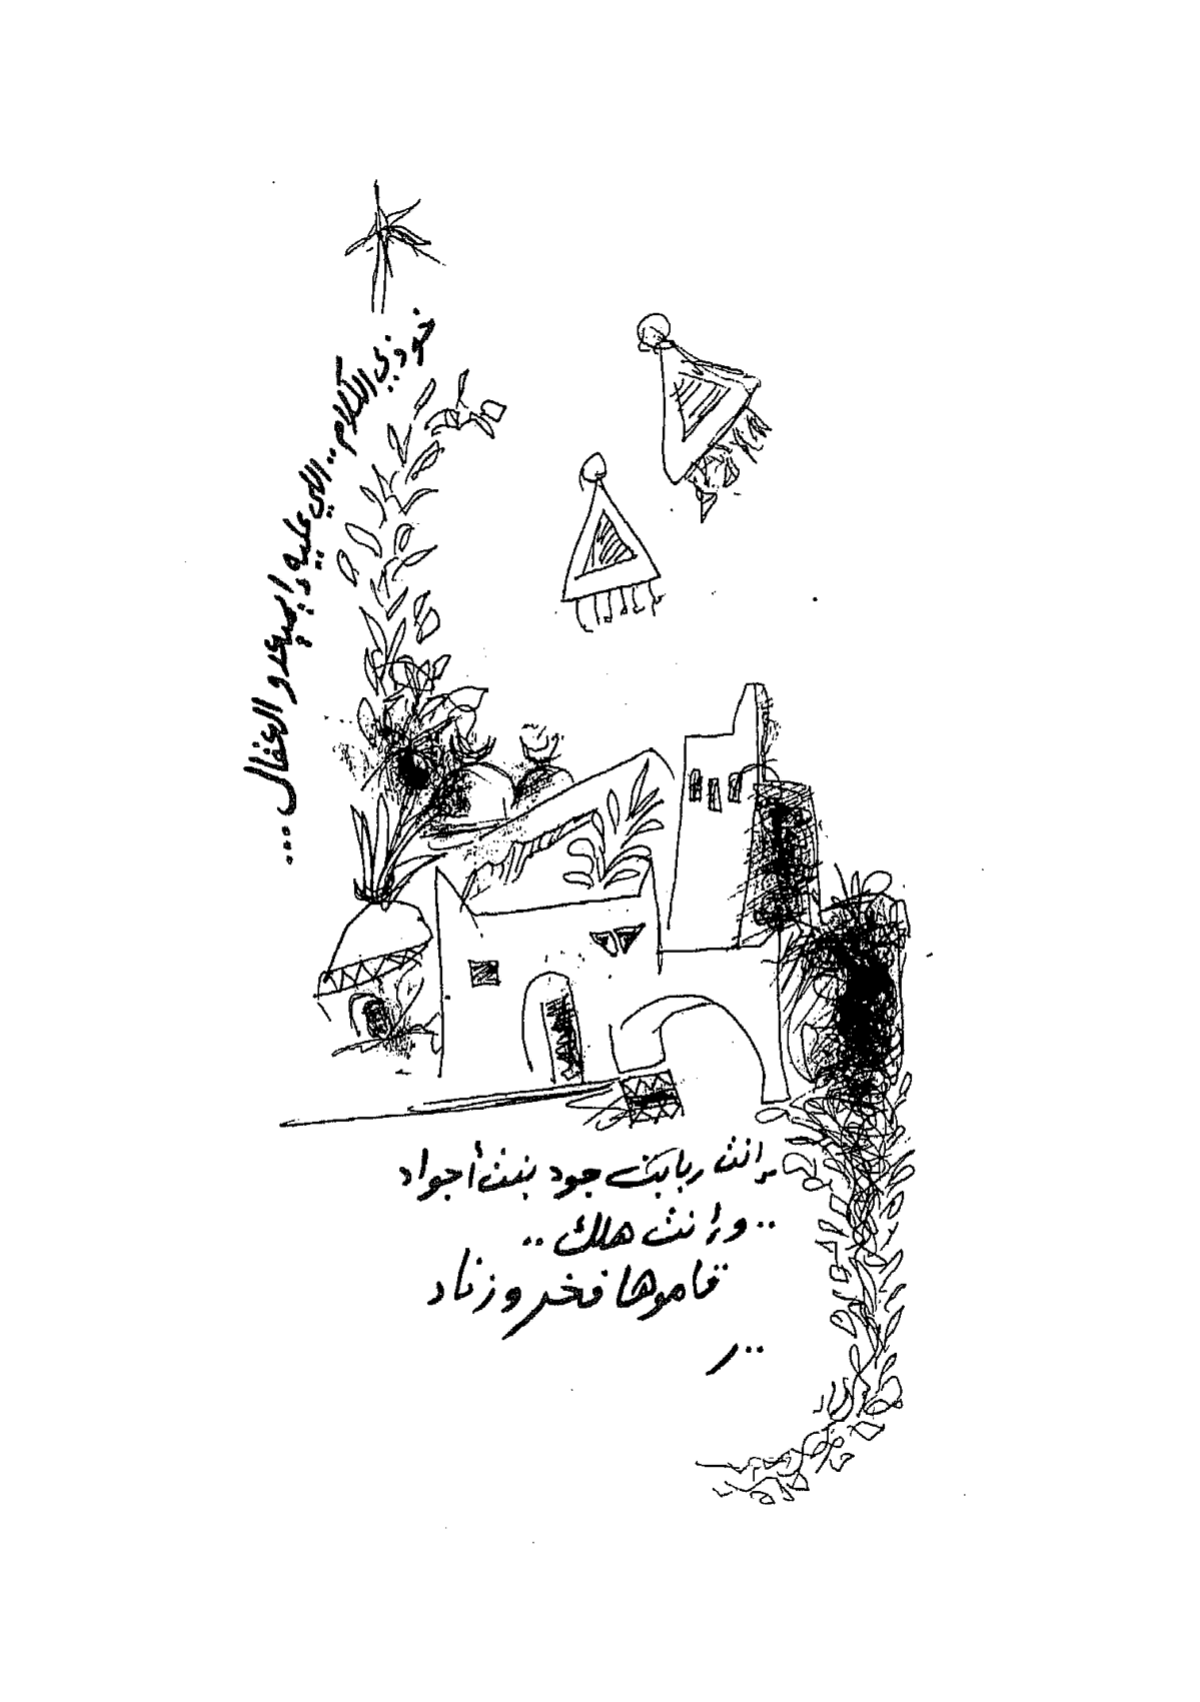 خوذي الكلام .. اللي عليه إيهيدو العفال ...
إنت ربابك جود بنت أجواد
.. وإنت هلك ..
قاموها فخر وزناد
..